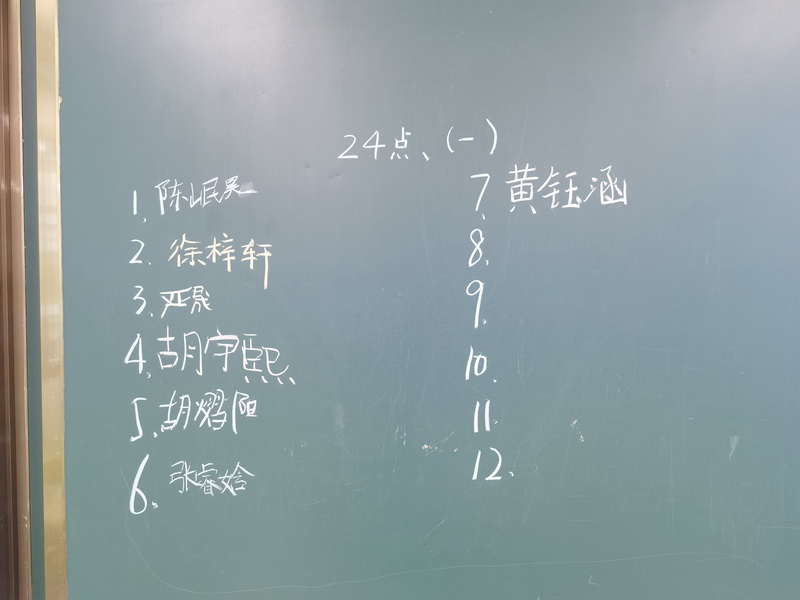 24点、(一)
1. 陈岷昊
2. 徐梓轩
3. 严晟
4. 胡宇熙
5. 胡熠阳
6. 张睿姶
7. 黄钰涵
8.
9.
10.
11.
12.